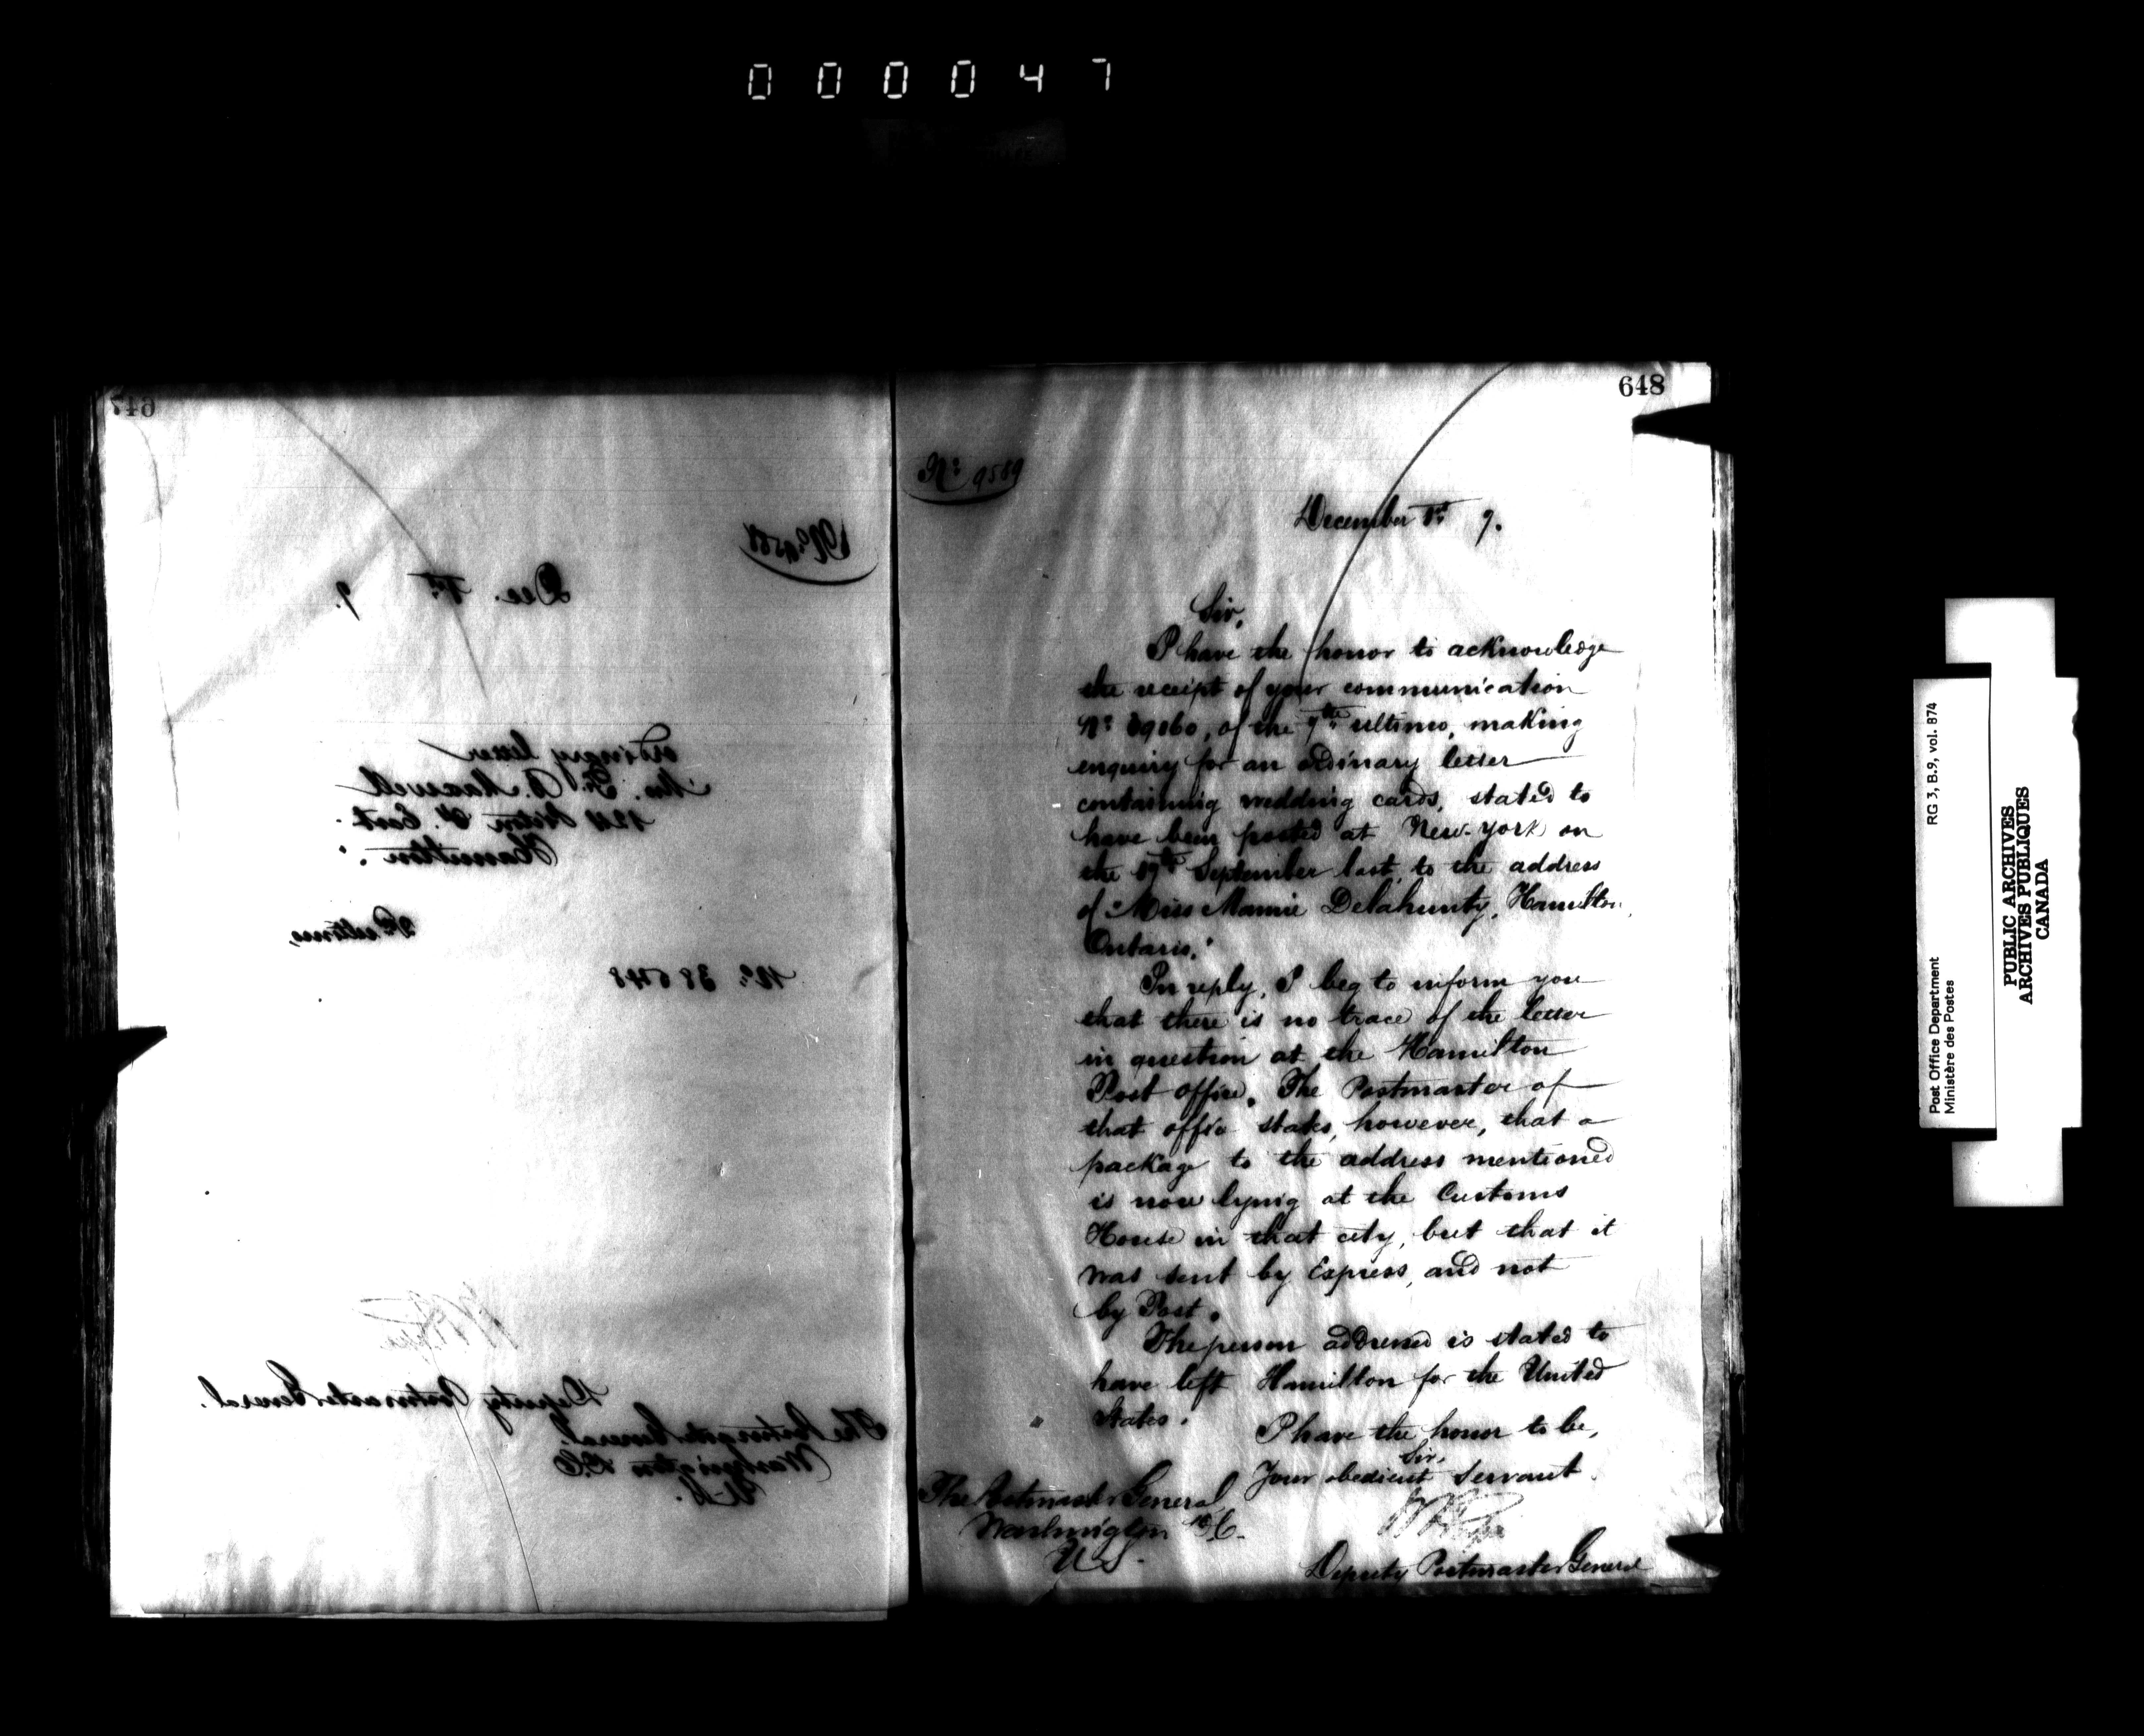 000047
647
No. 9588
Dec. 1st 9.
ordinary letter
Mrs. F. B. Maxwell
St. East
Hamilton.
ultimo,
No.
Deputy Postmaster General.
The Postmaster General
Washington D.C.
U.S.
648
No. 9589
December 1st 9.
Sir,
I have the honor to acknowledge
the receipt of your communication
No. 39060, of the 7th ultimo, making
enquiry for an ordinary letter
containing wedding cards, stated to
have been posted at New-York on
the 19th September last, to the address
of "Miss Mamie Delahunty, Hamilton,
Ontario."
In reply, I beg to inform you
that there is no trace of the letter
in question at the Hamilton
Post office. The Postmaster of
that office states, however, that a
package to the address mentioned
is now lying at the Customs
House in that city, but that it
was sent by Express, and not
by Post.
The person addressed is stated to
have left Hamilton for the United
States.
I have the honor to be,
Sir,
Your obedient Servant
The Postmaster General
Washington D.C.
U.S.
Deputy Postmaster General
Post Office Department
Ministère des Postes
RG 3, B.9, vol. 874
PUBLIC ARCHIVES
ARCHIVES PUBLIQUES
CANADA